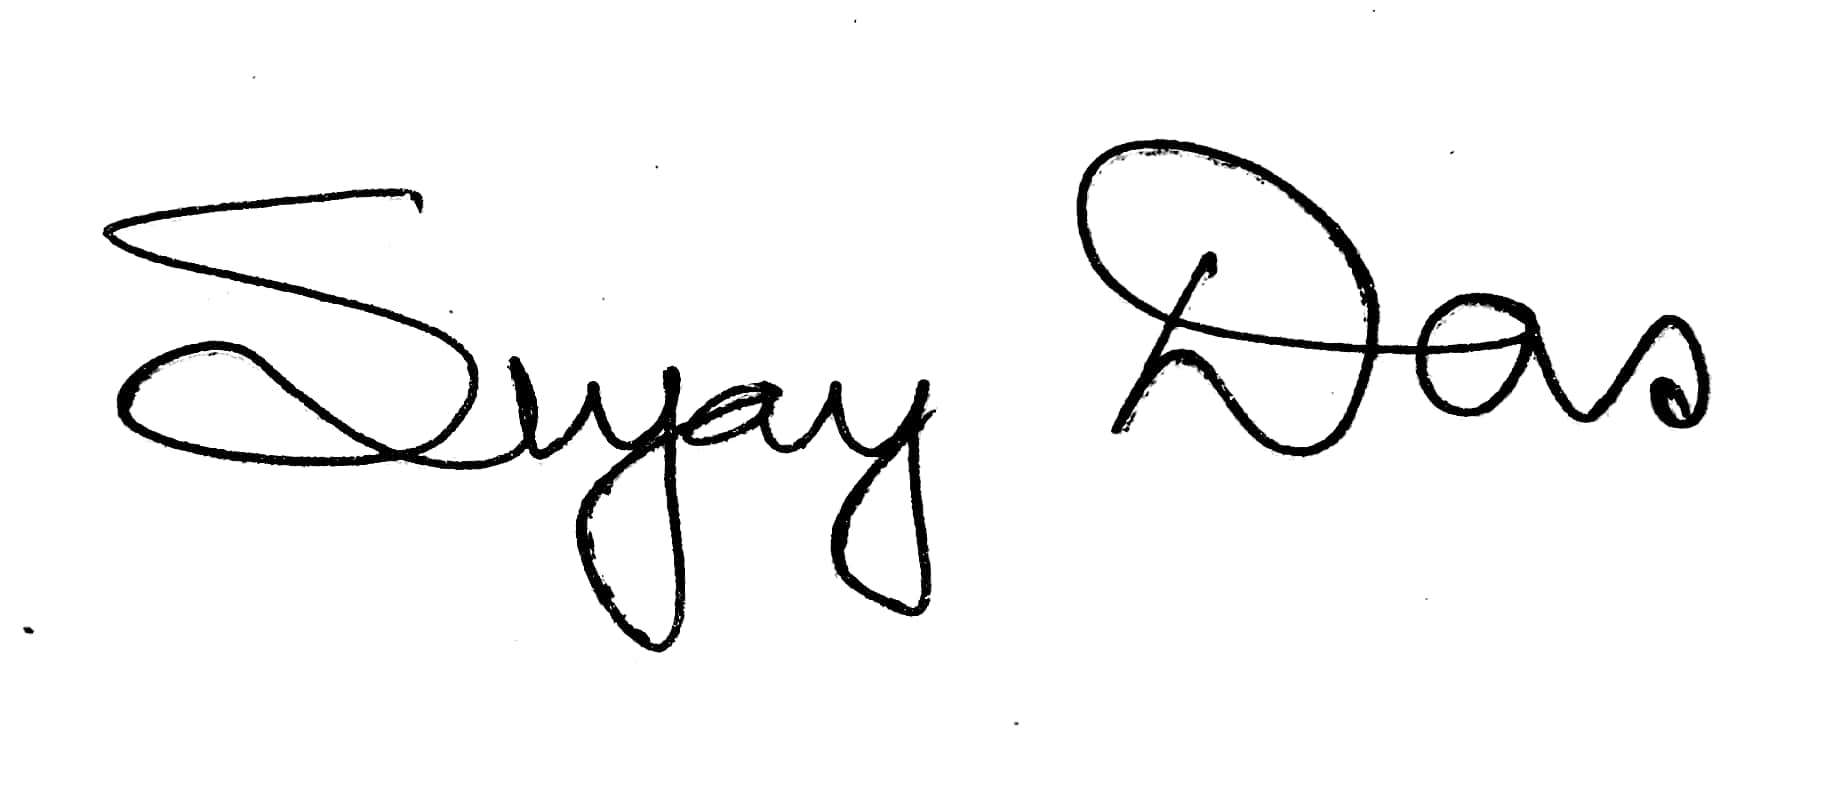 Sujay Das